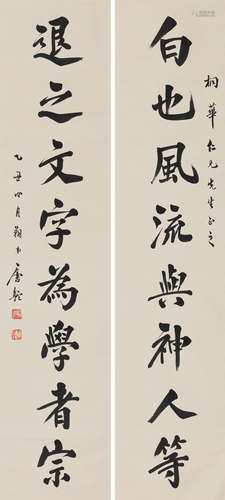 桐華仁兄先生正之
白也風流與神人等
退之文字為學者宗
乙丑四月 唐駝